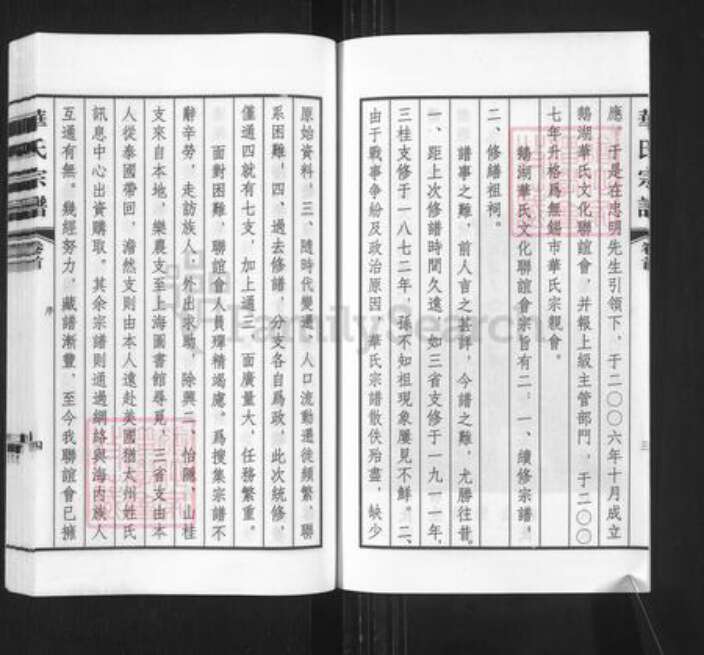 應，于是在忠明先生引領下，于二〇〇六年十月成立
鵝湖華氏文化聯誼會，并報上級主管部門，于二〇〇
七年升格爲無錫市華氏宗親會。
鵝湖華氏文化聯誼會宗旨有二：一、續修宗譜。
二、修繕祖祠。
譜事之難，前人言之甚詳，今譜之難，尤勝往昔。
一、距上次修譜時間久遠，如三省支修于一九一一年，
三桂支修于一八七二年，孫不知祖現象屢見不鮮。二、
由于戰事争紛及政治原因，華氏宗譜散佚殆盡，缺少
華氏宗譜
卷首
三
原始資料，三、隨時代變通，人口流動遷徙頻繁，聯
系困難，四、過去修譜，分支各自爲政，此次統修，
僅通四就有七支，加上通三，面廣量大，任務繁重。
面對困難，聯誼會人員殫精竭慮。爲搜集宗譜不
辭辛勞，走訪族人，外出求助，除興二、怡隱、山桂
支來自本地，樂農支至上海圖書館尋覓，三省支由本
人從泰國帶回，澹然支則由本人遠赴美國猶太州姓氏
訊息中心出資購取。其余宗譜則通過網絡與海内族人
互通有無。幾經努力，藏譜漸豐，至今我聯誼會已擁
華氏宗譜
卷首
序
四
FamilySearch